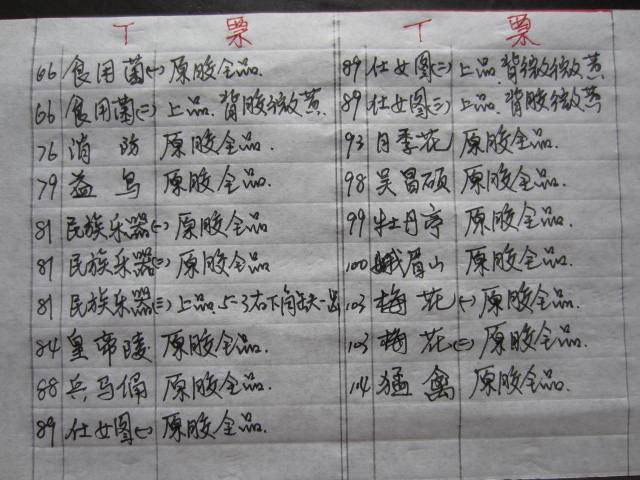 T 票
66 食用菌(一) 原胶全品.
66 食用菌(二) 上品.背胶微黄.
76 消防 原胶全品.
79 益鸟 原胶全品.
81 民族乐器(一) 原胶全品
81 民族乐器(二) 原胶全品
81 民族乐器(三) 上品.5-3右下角缺一齿
84 皇帝陵 原胶全品.
88 兵马俑 原胶全品.
89 仕女图(一) 原胶全品.
T 票
89 仕女图(二) 上品.背微微黄
89 仕女图(三) 上品.背胶微黄
93 月季花 原胶全品.
98 吴昌硕 原胶全品.
99 牡丹亭 原胶全品.
100 峨眉山 原胶全品.
103 梅花(一) 原胶全品.
103 梅花(二) 原胶全品.
114 猛禽 原胶全品.